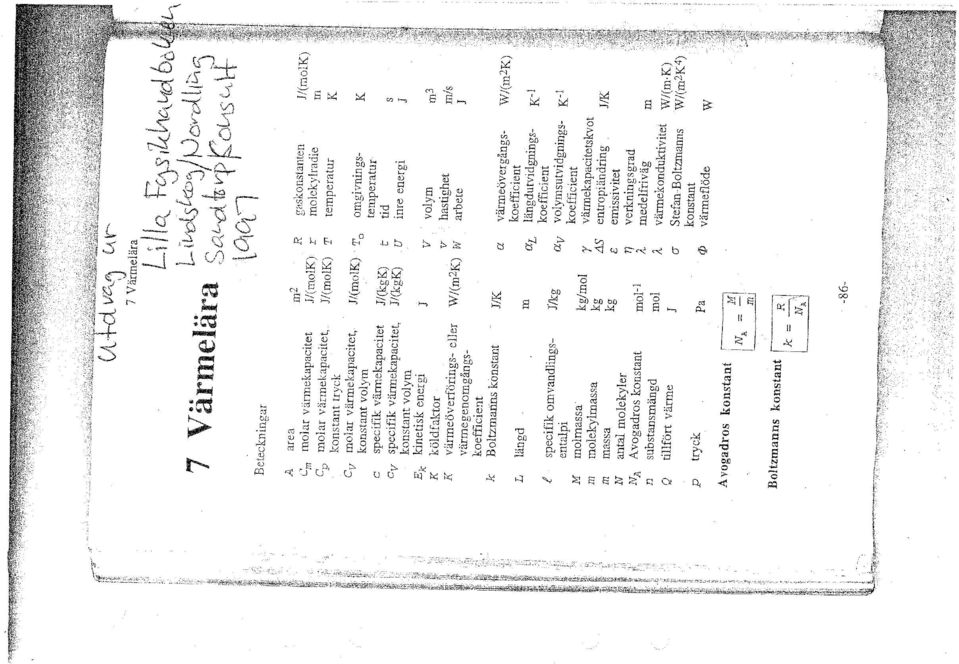 Utdrag ur
7 Värmelära
Lilla Fysikhandboken
Lindskog/Nordling
Sandtorp Konsult
1997
7 Värmelära
Beteckningar
A area m²
C_m molar värmekapacitet J/(molK)
C_p molar värmekapacitet, J/(molK)
konstant tryck
C_V molar värmekapacitet, J/(molK)
konstant volym
c specifik värmekapacitet J/(kgK)
c_V specifik värmekapacitet, J/(kgK)
konstant volym
E_k kinetisk energi J
K köldfaktor
K värmeöverförings- eller W/(m²K)
värmegenomgångs-
koefficient
k Boltzmanns konstant J/K
L längd m
ℓ specifik omvandlings- J/kg
entalpi
M molmassa kg/mol
m molekylmassa kg
m massa kg
N antal molekyler
N_A Avogadros konstant mol⁻¹
n substansmängd mol
Q tillfört värme J
p tryck Pa
R gaskonstanten J/(molK)
r molekylradie m
T temperatur K
T_o omgivnings- K
temperatur
t tid s
U inre energi J
V volym m³
v hastighet m/s
W arbete J
α värmeövergångs- W/(m²K)
koefficient
α_L längdutvidgnings- K⁻¹
koefficient
α_V volymsutvidgnings- K⁻¹
koefficient
γ värmekapacitetskvot
ΔS entropiändring J/K
ε emissivitet
η verkningsgrad
λ medelfriväg m
λ värmekonduktivitet W/(m·K)
σ Stefan-Boltzmanns W/(m²K⁴)
konstant
Φ värmeflöde W
Avogadros konstant N_A = M/m
Boltzmanns konstant k = R/N_A
-86-